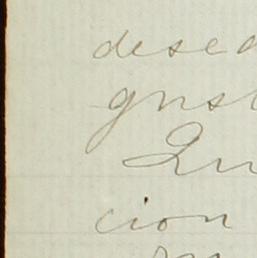 desea
gust
Qu
cion